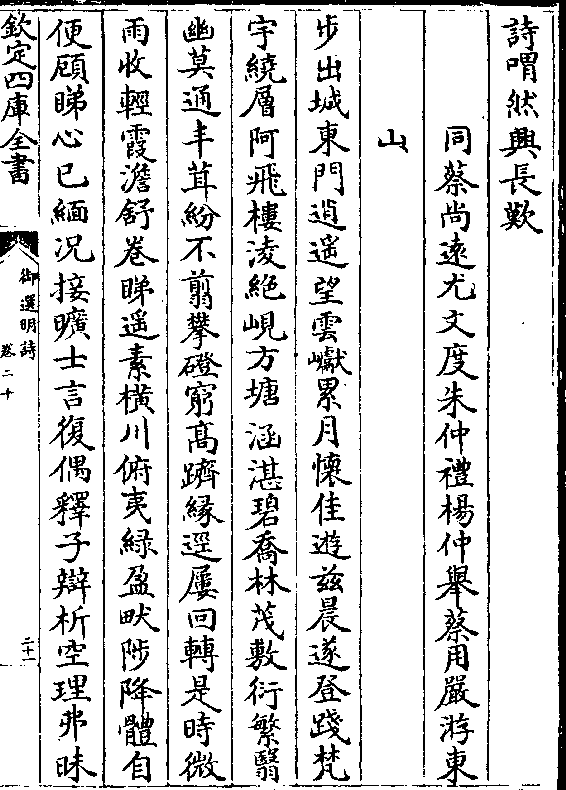 詩喟然興長歎
同蔡尚逺尤文度朱仲禮楊仲舉蔡用嚴游東
山
步出城東門逍遥望雲巘累月懐佳遊兹晨遂登踐梵
宇繞層阿飛樓淩絶峴方塘涵湛碧喬林茂敷衍繁翳
幽莫通丰茸紛不翦攀磴窮髙躋縁逕屢回轉是時微
雨收輕霞澹舒卷睇遥素横川俯夷緑盈畎陟降體自
便顧睇心已緬况接曠士言復偶釋子辯析空理弗昧
欽定四庫全書
御選明詩
卷二十
二十一